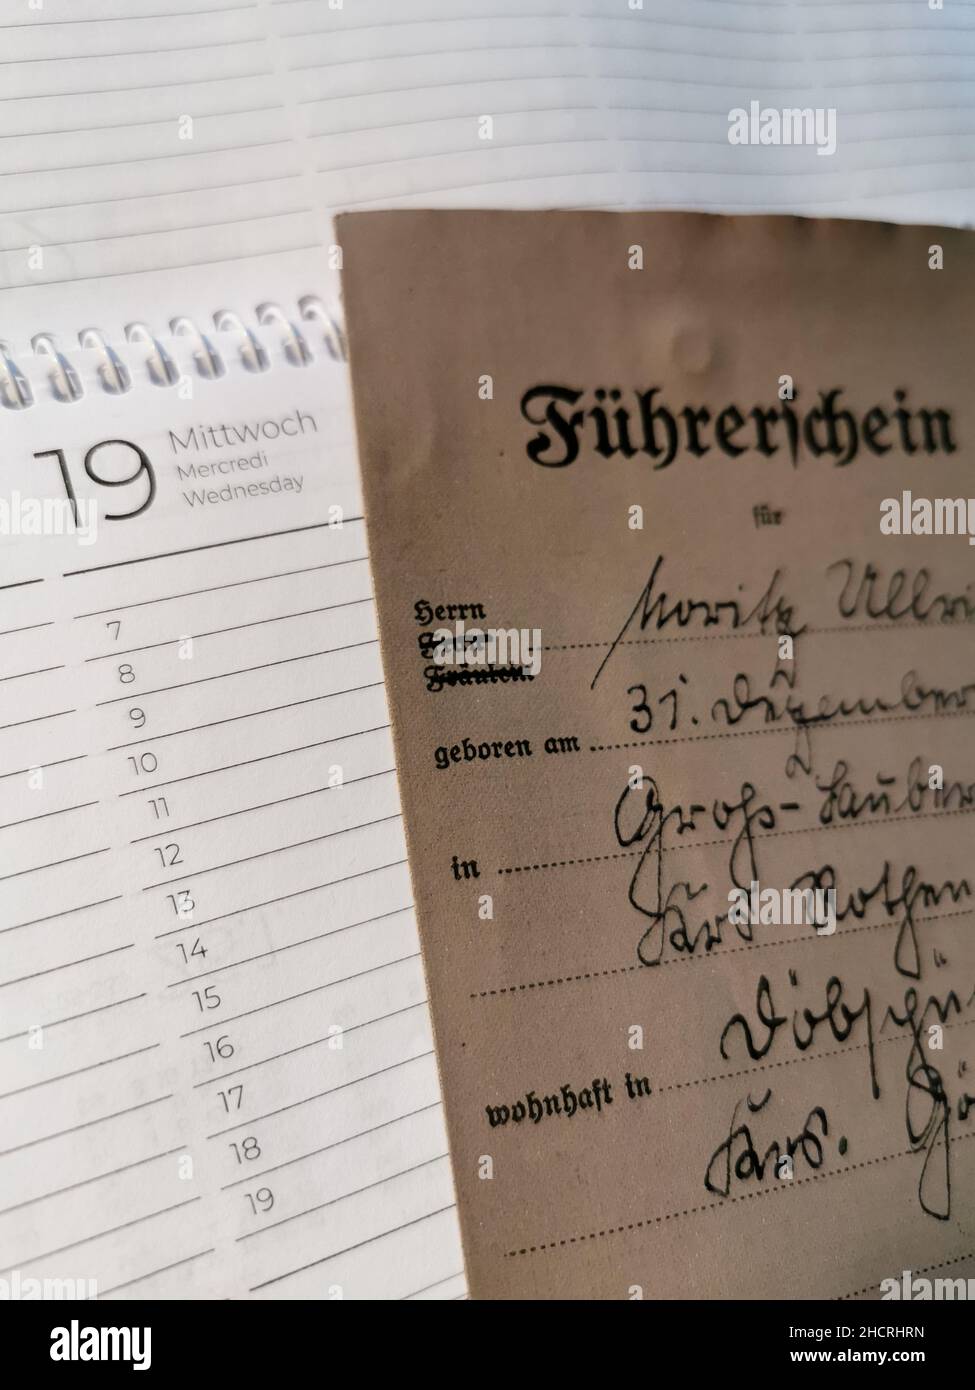 19 Mittwoch
Mercredi
Wednesday
7
8
9
10
11
12
13
14
15
16
17
18
19
Führerschein
für
Herrn
Frau
Fräulein
Moritz Ullri
geboren am 31. Dezember
in Groß-
Krs Rothen
wohnhaft in Döbschü
Krs. Gö
alamy
a
alamy
Image ID: 2HCRHRN
www.alamy.com